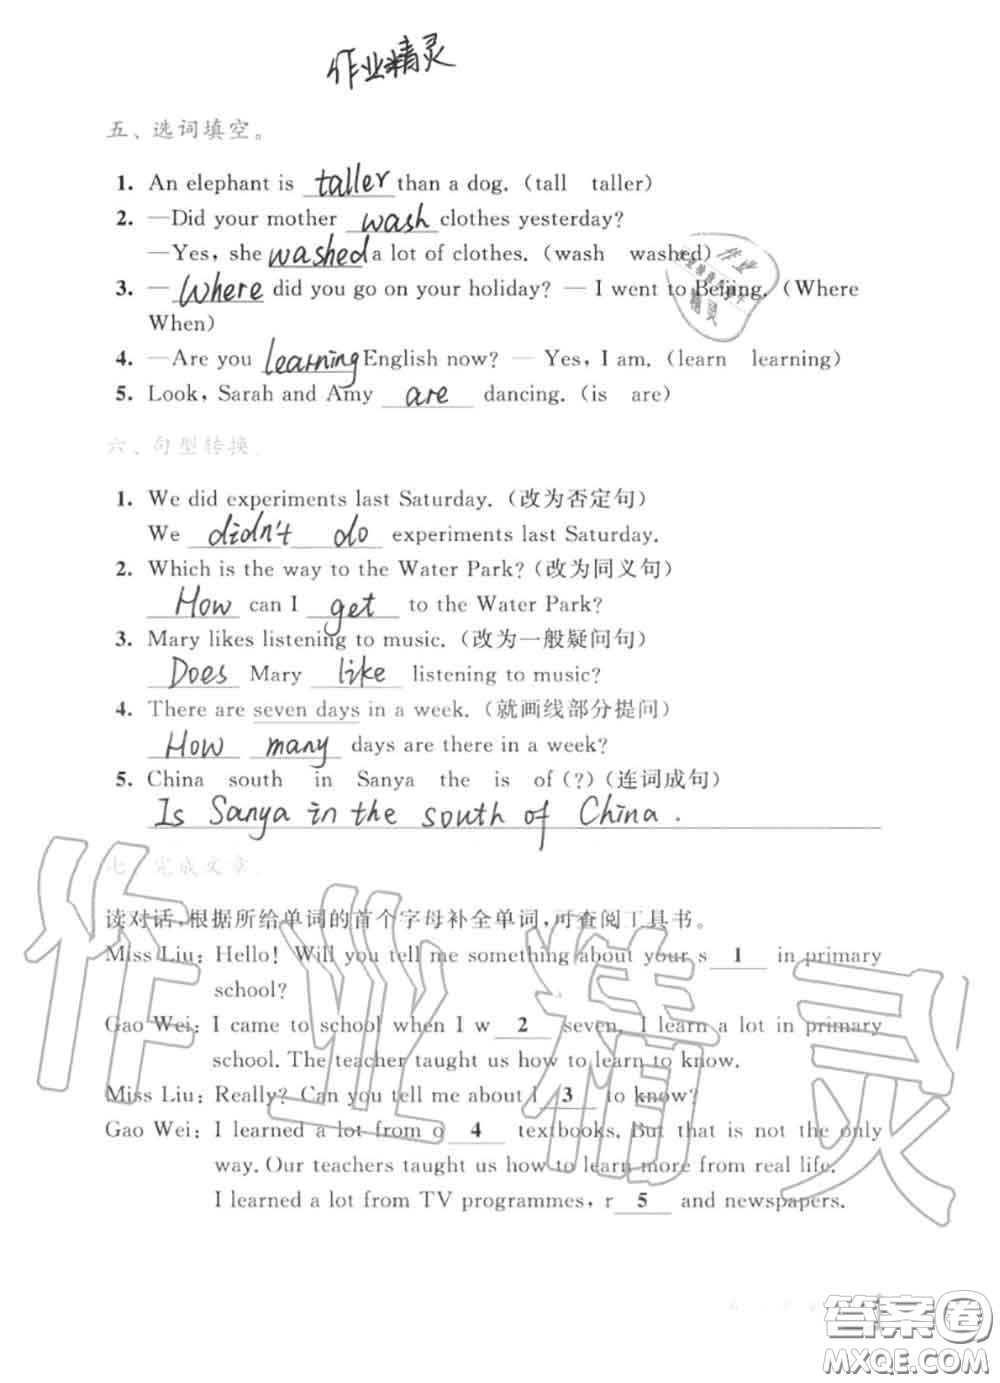 作业精灵
五、选词填空。
1. An elephant is taller than a dog. (tall taller)
2. —Did your mother wash clothes yesterday?
—Yes, she washed a lot of clothes. (wash washed)
3. — Where did you go on your holiday? — I went to Beijing. (Where
When)
4. —Are you learning English now? — Yes, I am. (learn learning)
5. Look, Sarah and Amy are dancing. (is are)
六、句型转换。
1. We did experiments last Saturday. (改为否定句)
We didn't do experiments last Saturday.
2. Which is the way to the Water Park? (改为同义句)
How can I get to the Water Park?
3. Mary likes listening to music. (改为一般疑问句)
Does Mary like listening to music?
4. There are seven days in a week. (就画线部分提问)
How many days are there in a week?
5. China south in Sanya the is of (?) (连词成句)
Is Sanya in the south of China.
七、完成文章。
读对话,根据所给单词的首个字母补全单词,可查阅工具书。
Miss Liu: Hello! Will you tell me something about your s 1 in primary
school?
Gao Wei: I came to school when I w 2 seven. I learn a lot in primary
school. The teacher taught us how to learn to know.
Miss Liu: Really? Can you tell me about l 3 to know?
Gao Wei: I learned a lot from o 4 textbooks. But that is not the only
way. Our teachers taught us how to learn more from real life.
I learned a lot from TV programmes, r 5 and newspapers.
作业精灵
答案圈
MXQE.COM